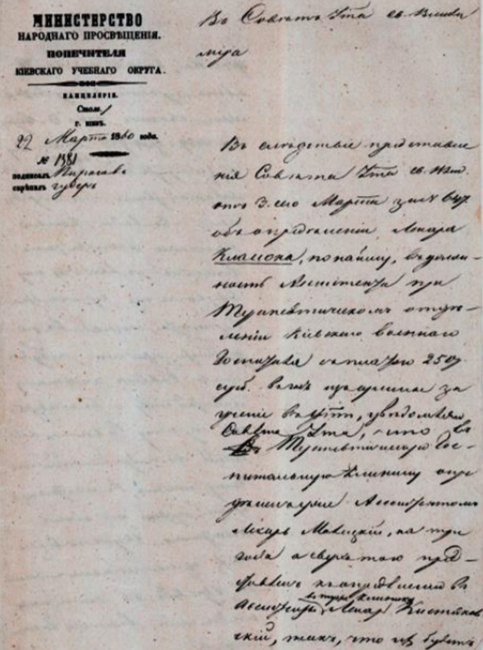 МИНИСТЕРСТВО
НАРОДНАГО ПРОСВѢЩЕНІЯ.
ПОПЕЧИТЕЛЯ
КІЕВСКАГО УЧЕБНАГО ОКРУГА.
КАНЦЕЛЯРІЯ.
Столъ 1
г. КІЕВЪ.
22 Марта 1860 года.
№ 1381
Въ Совѣтъ Ун-та св. Влади
мира
Въ слѣдствіе представле
нія Совѣта Ун-та св. Влад.
отъ 3. сего Марта за № 647
объ опредѣленіи Лекаря
по найму, въ долж
ность Ассистента при
Терапевтическомъ отдѣ
леніи Кіевскаго военнаго
Госпиталя съ платою 250 р.
суб. въ годъ за
ученіе въ Ун-тѣ, увѣдомляю
Совѣтъ Ун-та, что въ
Терапевтическую Гос
питальную Клинику опре
Ассистентомъ
Лекарь на три
года а сверхъ того пред
въ
Лекарь Кистяков
скій, такъ, что будетъ